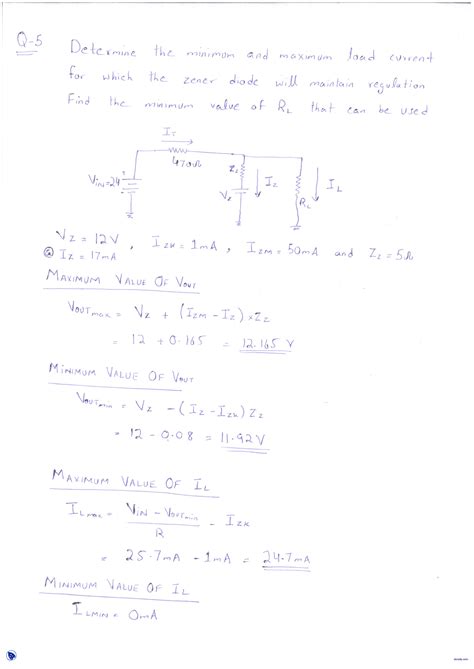 Q-5 Determine the minimum and maximum load current
for which the zener diode will maintain regulation
Find the minimum value of RL that can be used
IT
470Ω
VIN=24
ZZ
VZ
IZ
RL
IL
VZ = 12V , IZK = 1mA , IZM = 50mA and ZZ = 5Ω
@ IZ = 17mA
MAXIMUM VALUE OF VOUT
VOUTmax = VZ + (IZM - IZ) × ZZ
= 12 + 0.165 = 12.165 V
MINIMUM VALUE OF VOUT
VOUTmin = VZ - (IZ - IZK) ZZ
= 12 - 0.08 = 11.92V
MAXIMUM VALUE OF IL
ILmax = VIN - VOUTmin / R - IZK
= 25.7mA - 1mA = 24.7mA
MINIMUM VALUE OF IL
ILMIN = 0mA